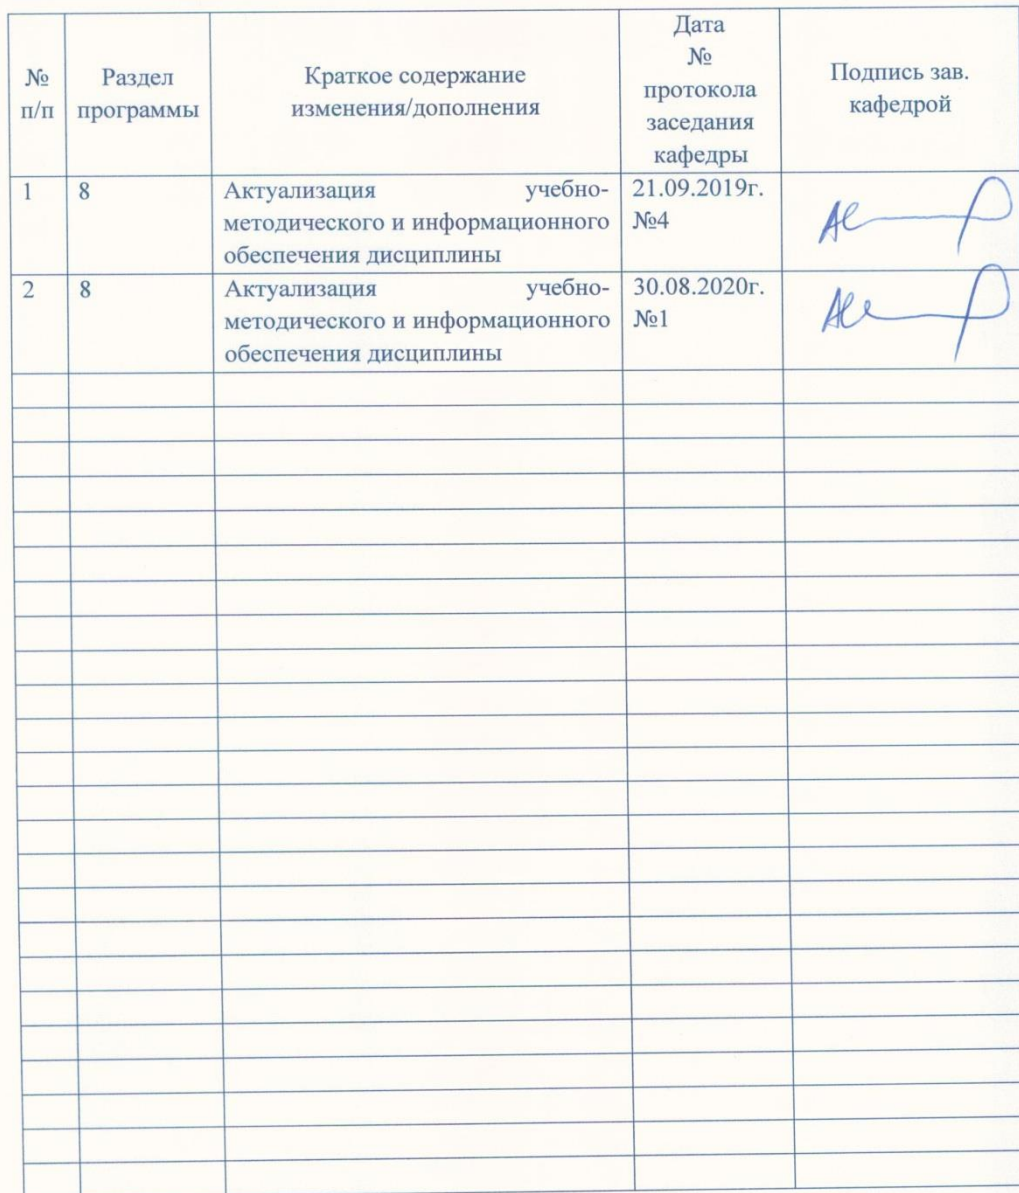 № п/п
Раздел программы
Краткое содержание изменения/дополнения
Дата № протокола заседания кафедры
Подпись зав. кафедрой
1
8
Актуализация учебно-
методического и информационного
обеспечения дисциплины
21.09.2019г.
№4
2
8
Актуализация учебно-
методического и информационного
обеспечения дисциплины
30.08.2020г.
№1